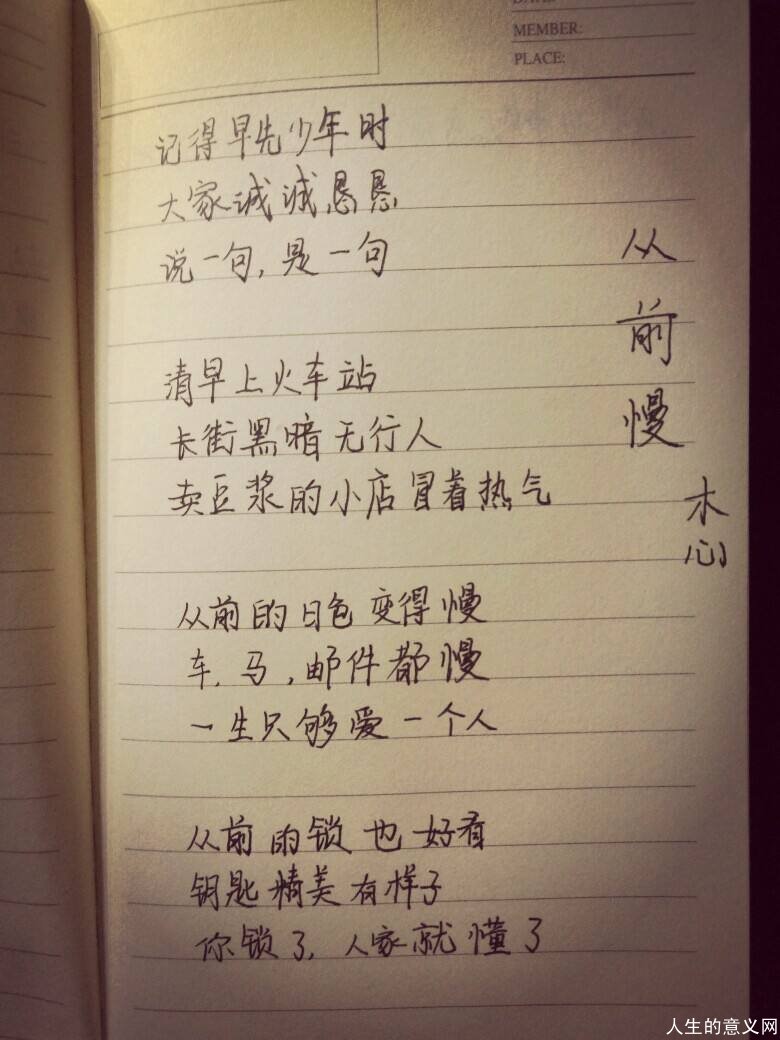 MEMBER:
PLACE:
从前慢
木心
记得早先少年时
大家诚诚恳恳
说一句,是一句
清早上火车站
长街黑暗无行人
卖豆浆的小店冒着热气
从前的日色变得慢
车,马,邮件都慢
一生只够爱一个人
从前的锁也好看
钥匙精美有样子
你锁了,人家就懂了
人生的意义网